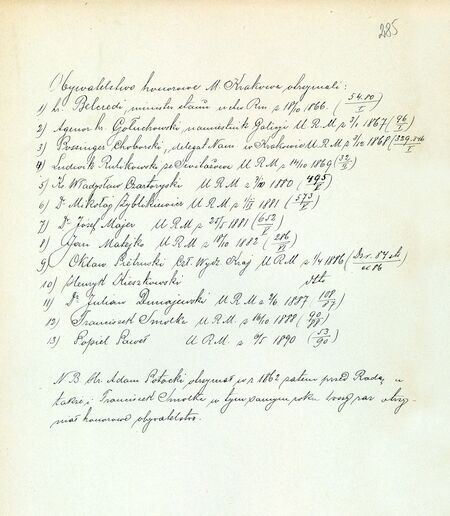 285
Obywatelstwo honorowe M. Krakowa otrzymali:
1) hr. Belcredi minister stanu uchw. Rm. z 18/10 1866. (54.80/I)
2) Agenor hr. Gołuchowski namiestnik Galicyi U R M z 1867 (96/I)
3) Possinger Choborski, delegat Nam. w Krakowie U R M z 1868
4) Ludwik z Świłaczow U R M z 14/10 1869 (32/)
5) Ks Władysław Czartoryski U R M z 1880 (495/)
6) Dr Mikołaj Zyblikiewicz U R M z 1881 (573/)
7) Dr Józef Majer U R M z 25/5 1881 (652/)
8) Jan Matejko U R M z 1882 (286/)
9) Oktaw Pietruski Czł. Wydz. Kraj U R M z 1886
10) Henryk Kieszkowski dtto
11) Dr Julian Dunajewski U R M z 1887 (108/87)
12) Franciszek Smolka U R M. z 16/10 1888 (90/88)
13) Popiel Paweł U R M z 1890 (53/90)
N B. Hr. Adam Potocki otrzymał w r 1862 zatem przed Radą, a
także i Franciszek Smolka w tym samym roku
mał honorowe obywatelstwo.